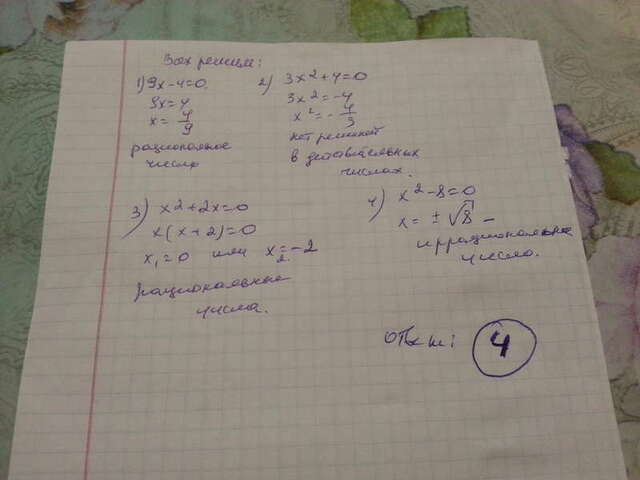 решим:
1) 9x-4=0
9x=4
x= 4/9
рациональное
число
2) 3x²+4=0
3x²=-4
x²=- 4/3
нет решений
в действительных
числах.
3) x²+2x=0
x(x+2)=0
x₁=0 или x₂=-2
рациональные
числа.
4) x²-8=0
x=±√8 –
иррациональное
число.
Ответ: 4